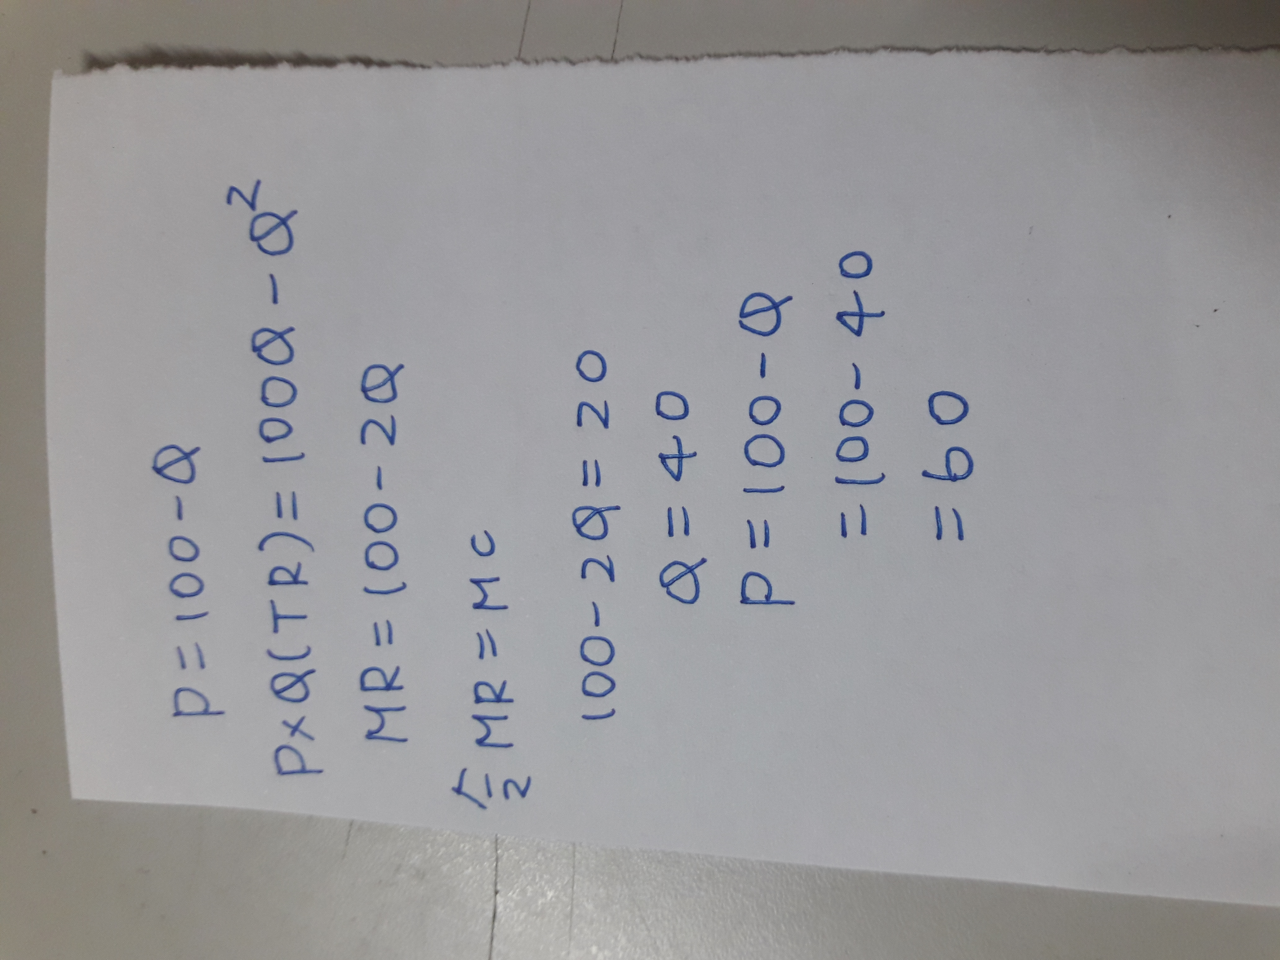 P=100-Q
P×Q(TR)=100Q-Q²
MR=100-2Q
令MR=MC
100-2Q=20
Q=40
P=100-Q
=100-40
=60